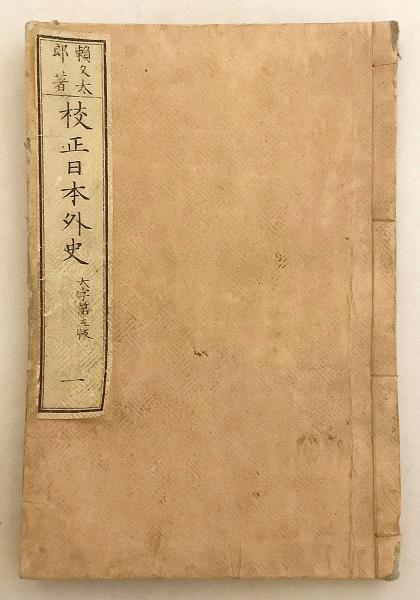 賴久太
郎著
校正日本外史
大字第三版
一